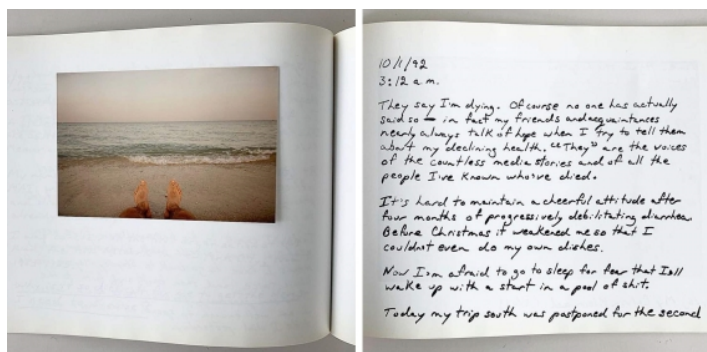 10/1/92
3:12 a.m.
They say I'm dying. Of course no one has actually
said so — in fact my friends and acquaintances
nearly always talk of hope when I try to tell them
about my declining health. "They" are the voices
of the countless media stories and of all the
people I've known who've died.
It's hard to maintain a cheerful attitude after
four months of progressively debilitating diarrhea.
Before Christmas it weakened me so that I
couldn't even do my own dishes.
Now I'm afraid to go to sleep for fear that I'll
wake up with a start in a pool of shit.
Today my trip south was postponed for the second